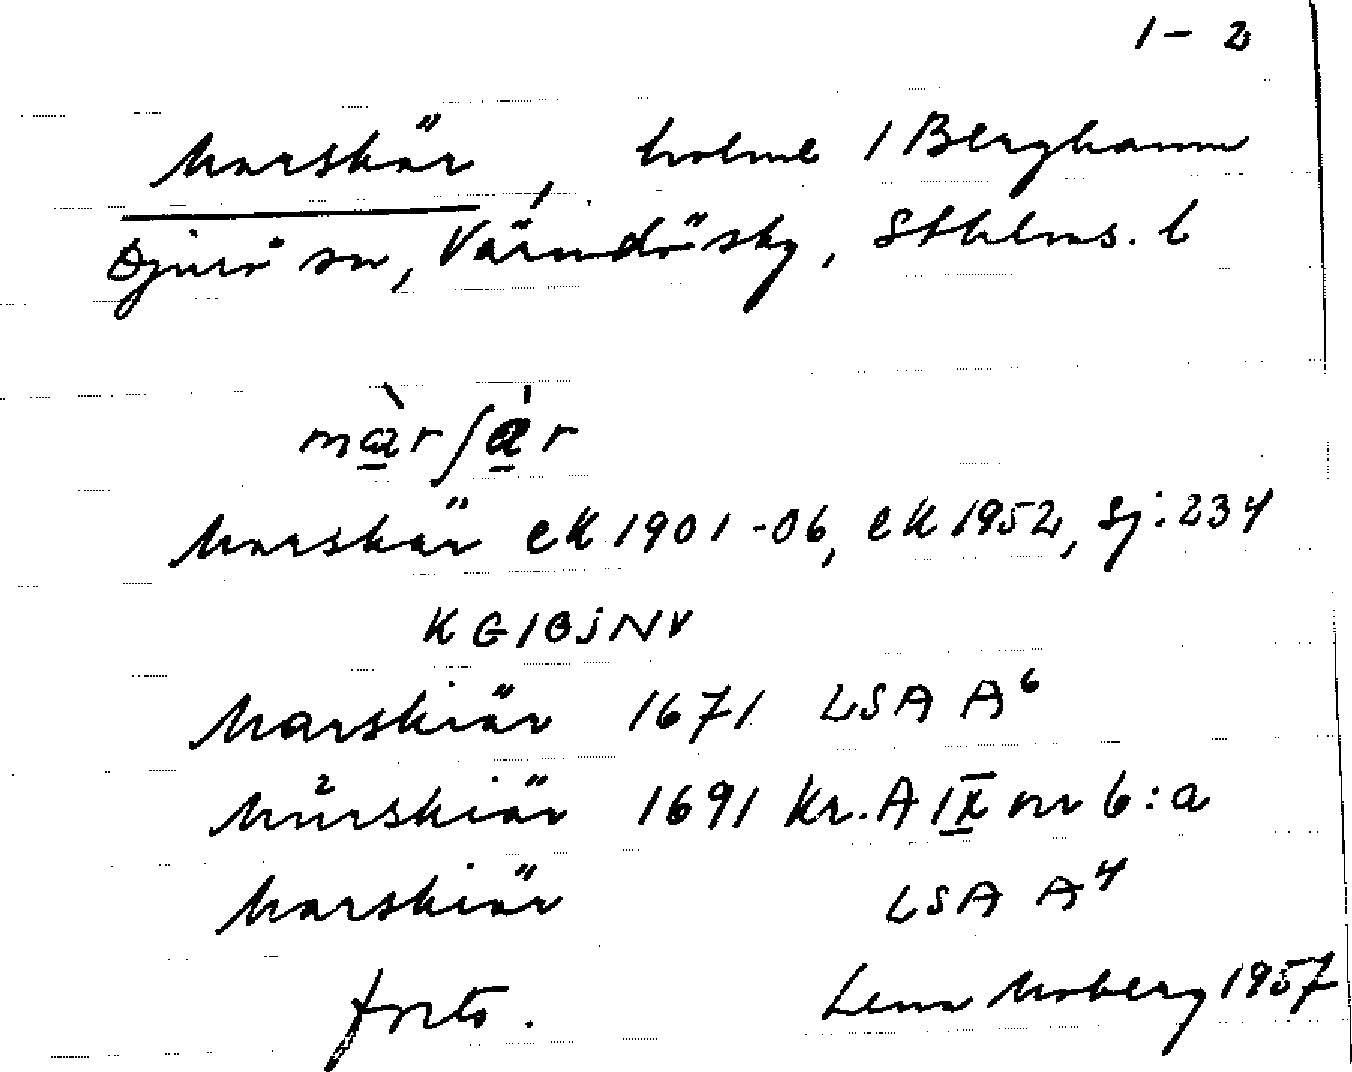 1-2
Marskär, holme i Berghamn
Djurö sn, Värmdö sky, Sthlms. l
màrʃàr
Marskär eK 1901-06, eK 1952, Sj:234
KGIBjNV
Marskiär 1671 LSA A⁶
Mårskiär 1691 Kr. A IX nr 6:a
Marskiär LSA A⁴
forts. Lena Moberg 1957